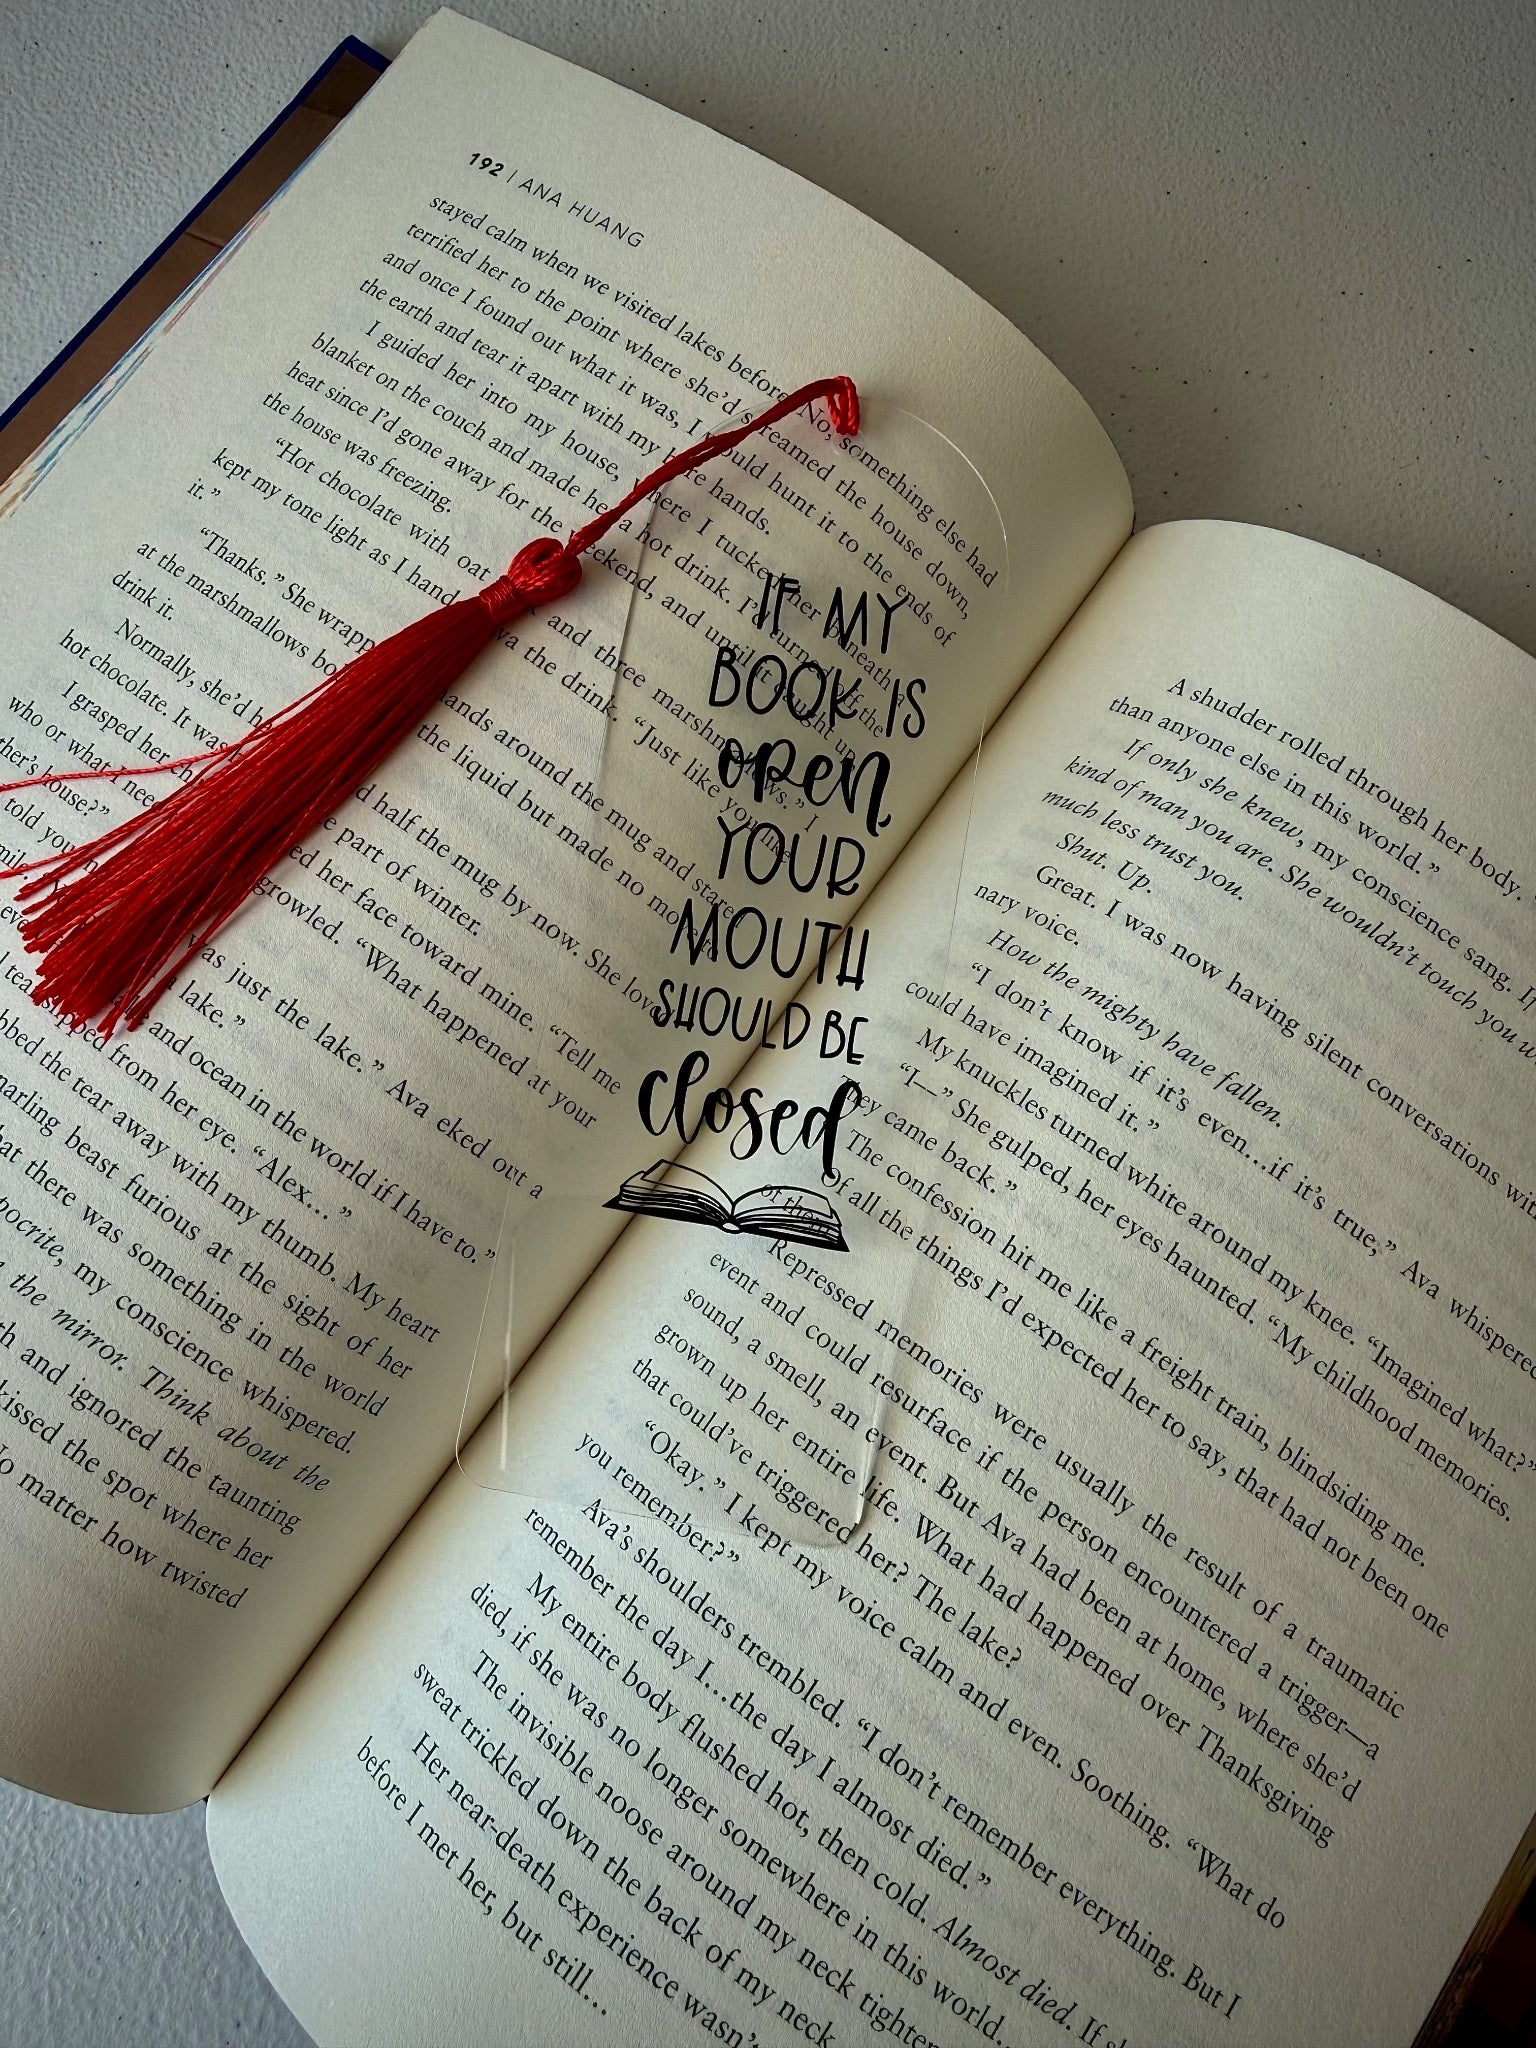 192 | ANA HUANG
stayed calm when we visited lakes before. No, something else had
terrified her to the point where she'd screamed the house down,
and once I found out what it was, I would hunt it to the ends of
the earth and tear it apart with my bare hands.
I guided her into my house, where I tucked her beneath a
blanket on the couch and made her a hot drink. I'd turned off the
heat since I'd gone away for the weekend, and until it caught up,
the house was freezing.
“Hot chocolate with oat and three marshmallows.” I
kept my tone light as I hand Ava the drink. “Just like you like
it.”
“Thanks.” She wrapp hands around the mug and stare
at the marshmallows bo the liquid but made no move to
drink it.
Normally, she'd h half the mug by now. She love
hot chocolate. It was part of winter.
I grasped her ch ed her face toward mine. “Tell me
who or what I need growled. “What happened at your
ther's house?”
told you was just the lake.” Ava eked out a
lake.”
lake and ocean in the world if I have to.”
tear slipped from her eye. “Alex…”
bbed the tear away with my thumb. My heart
narling beast furious at the sight of her
hat there was something in the world
pocrite, my conscience whispered.
the mirror. Think about the
th and ignored the taunting
kissed the spot where her
No matter how twisted
IF MY
BOOK IS
open,
YOUR
MOUTH
SHOULD BE
closed
A shudder rolled through her body.
than anyone else in this world.”
If only she knew, my conscience sang. If
kind of man you are. She wouldn't touch you w
much less trust you.
Shut. Up.
Great. I was now having silent conversations wit
nary voice.
How the mighty have fallen.
“I don't know if it's even…if it's true,” Ava whispered
could have imagined it.”
My knuckles turned white around my knee. “Imagined what?”
“I—” She gulped, her eyes haunted. “My childhood memories.
They came back.”
The confession hit me like a freight train, blindsiding me.
Of all the things I'd expected her to say, that had not been one
of them.
Repressed memories were usually the result of a traumatic
event and could resurface if the person encountered a trigger—a
sound, a smell, an event. But Ava had been at home, where she'd
grown up her entire life. What had happened over Thanksgiving
that could've triggered her? The lake?
“Okay.” I kept my voice calm and even. Soothing. “What do
you remember?”
Ava's shoulders trembled. “I don't remember everything. But I
remember the day I…the day I almost died.”
My entire body flushed hot, then cold. Almost died. If sh
died, if she was no longer somewhere in this world…
The invisible noose around my neck tighten
sweat trickled down the back of my neck
Her near-death experience wasn't
before I met her, but still…